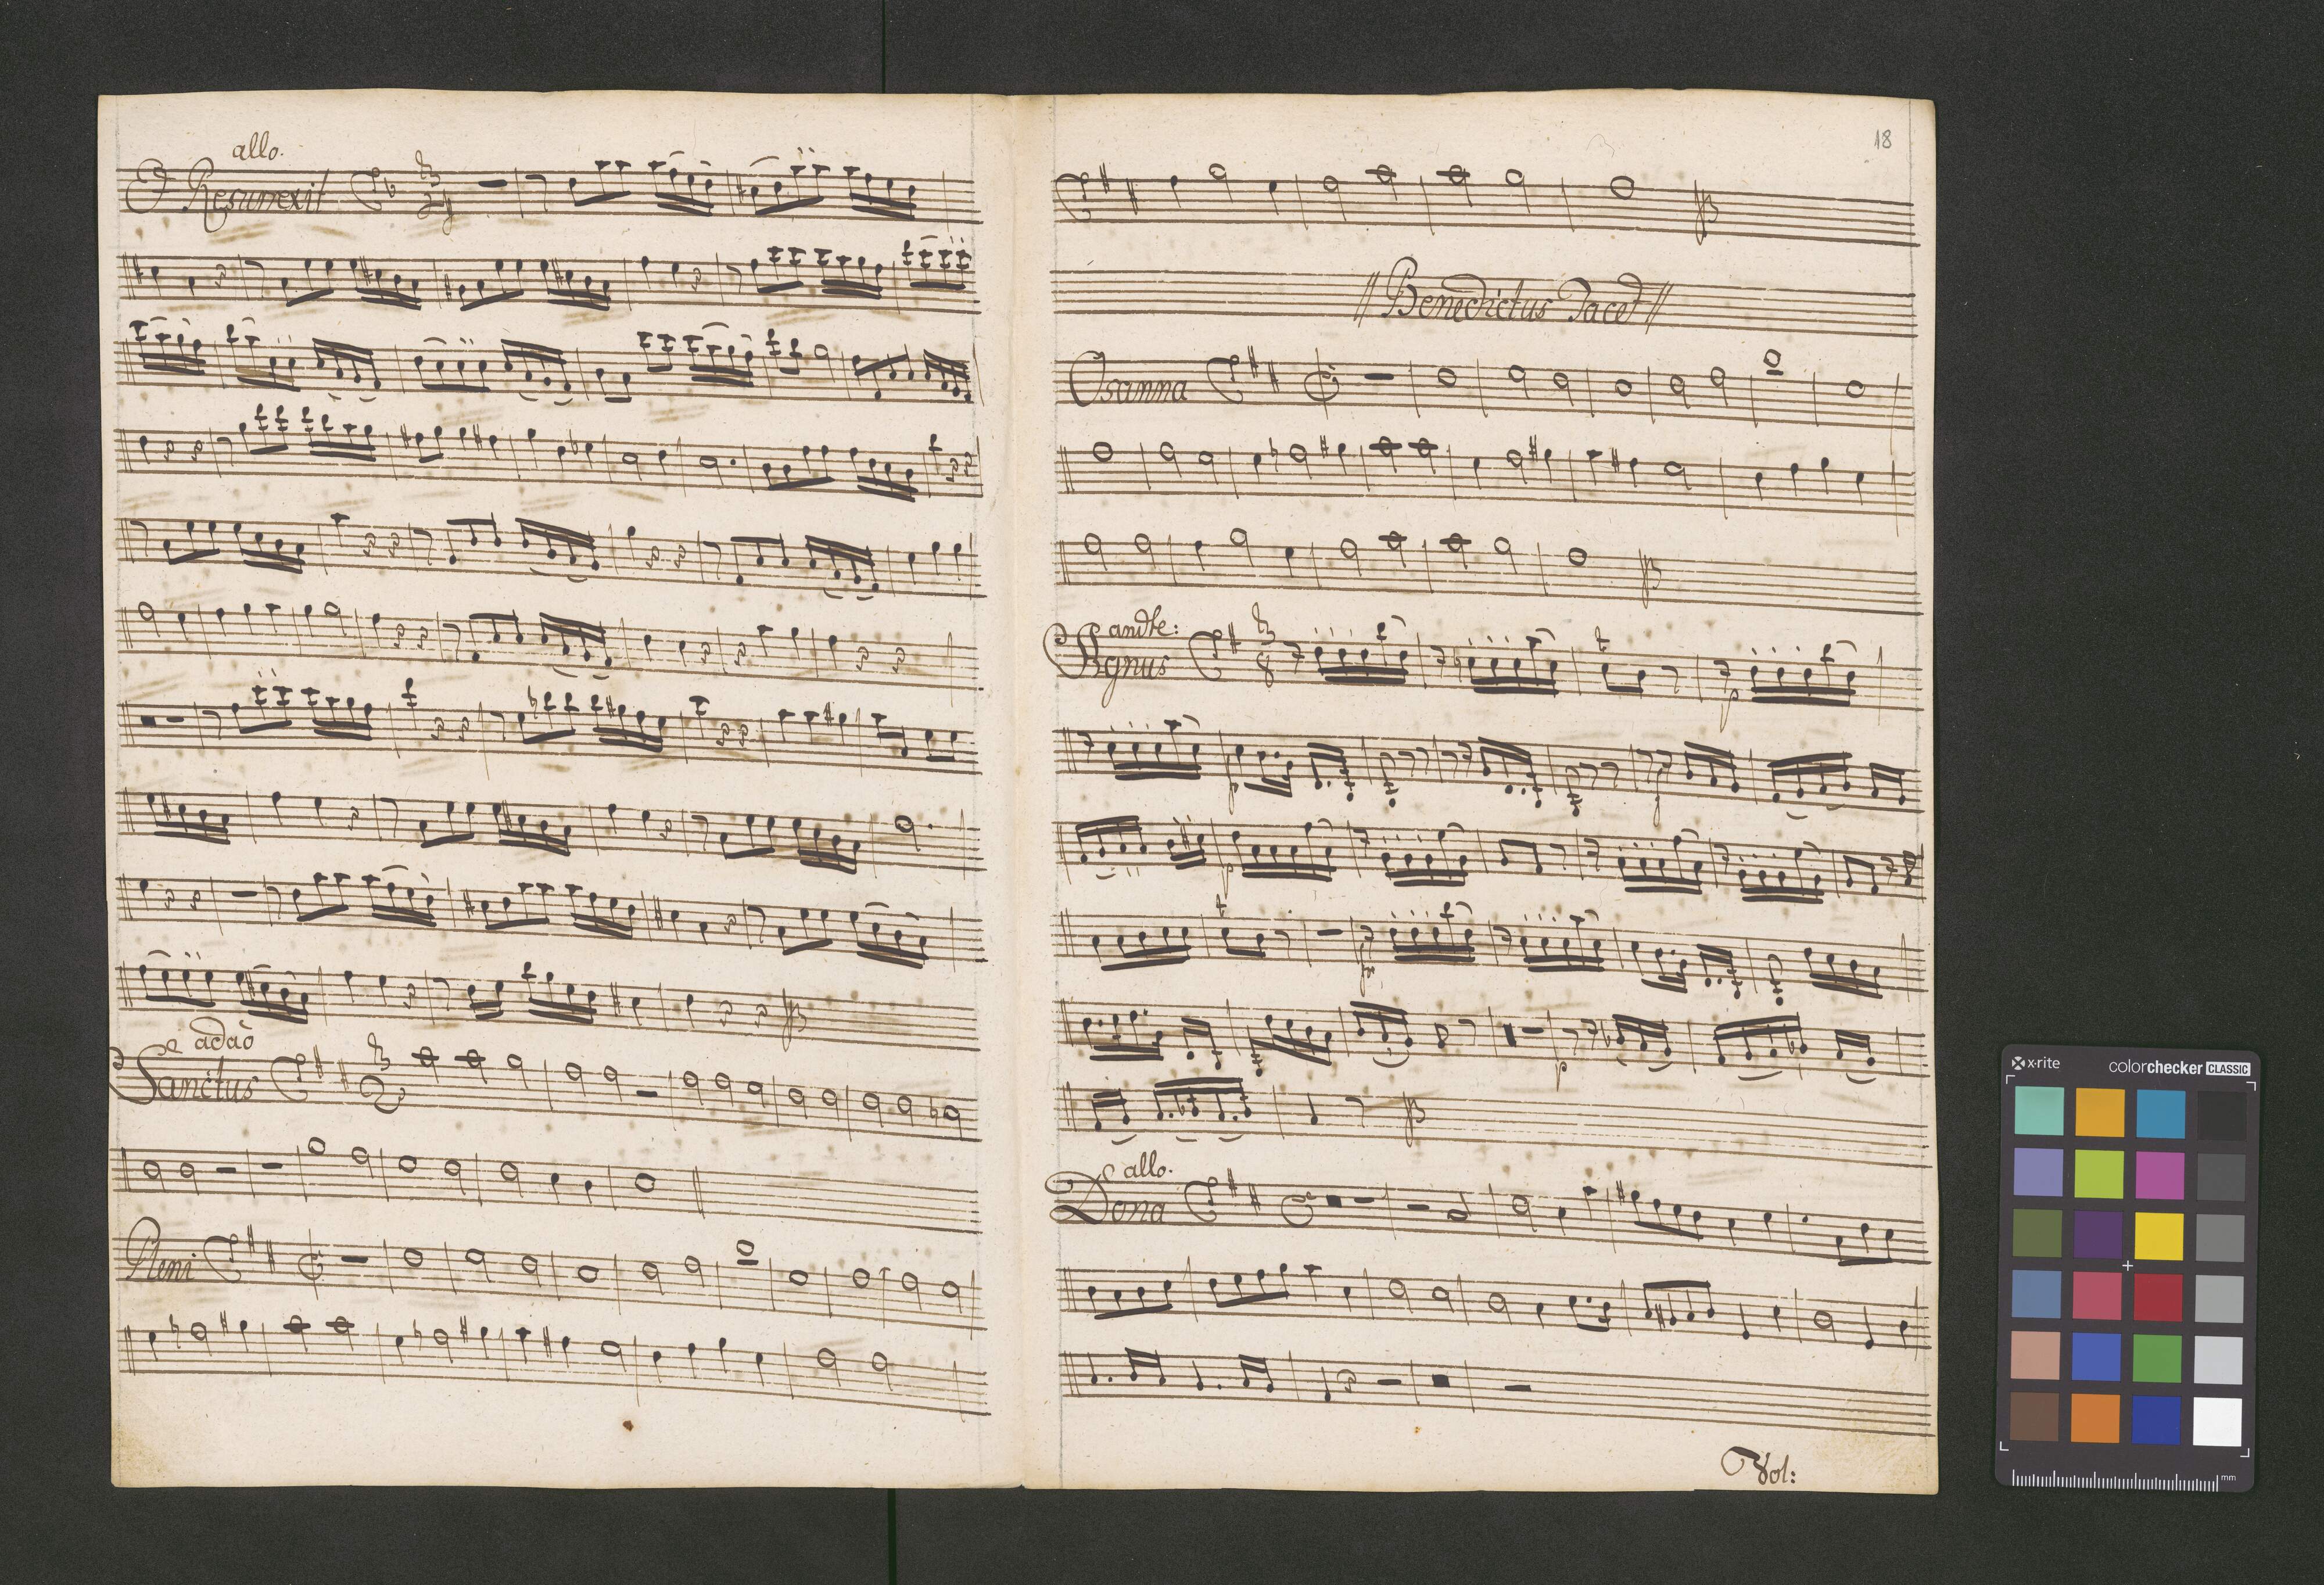 allo.
Et Resurrexit
3
4
adão
Sanctus
3
2
Pleni
18
// Benedictus Tacet //
Osanna
andte:
Agnus
3
8
p
p
p
allo.
Dona
Vol:
x-rite
colorchecker CLASSIC
mm